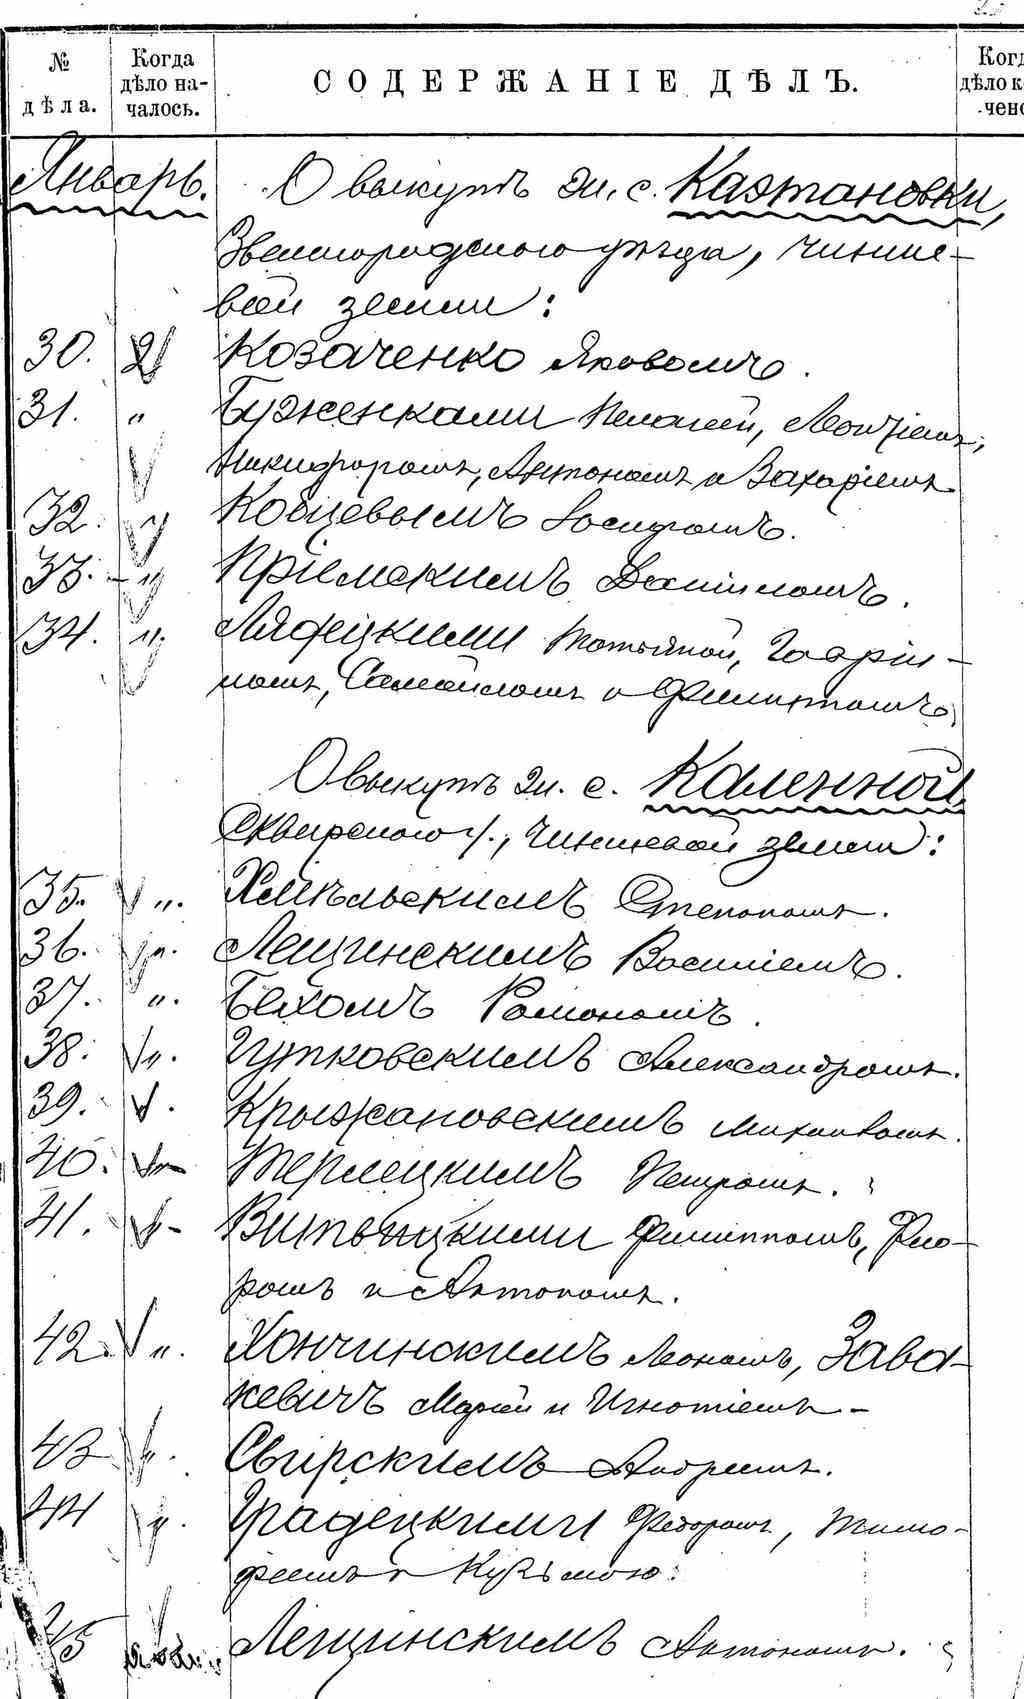 № дѣла.
Когда дѣло началось.
СОДЕРЖАНІЕ ДѢЛЪ.
Январь.
О выкупѣ въ с. Каэтановки,
Звенигородскаго уѣзда, чинше-
вой земли:
30. 2 Козаченко Яковомъ.
31. " Буженками Пелагіей, Леонтіемъ,
Никифоромъ, Антономъ и Захаріемъ
32. " Кобцевымъ Іосифомъ.
33. " Пріемскимъ Даніиломъ.
34. " Лядецкими Татьяной, Гаврі-
иломъ, Самойломъ и Филиппомъ
О выкупѣ въ с. Каленной
Сквирскаго у., чиншевой земли:
35. " Хмѣльскимъ Степаномъ.
36. " Лещинскимъ Василіемъ.
37. " Бехомъ Романомъ.
38. " Гутковскимъ Александромъ.
39. Крыжановскимъ Михаиломъ.
40. " Терлецкимъ Петромъ.
41. " Витвицкими Филиппомъ, Фло-
ромъ и Антономъ.
42. " Хончинскимъ Леономъ, Зава-
кевичъ Маріей и Игнатіемъ
43 " Свирскимъ Андреемъ.
44 " Градецкими Федоромъ, Тимо-
феемъ и Кузьмою.
45 Лещинскимъ Антономъ.